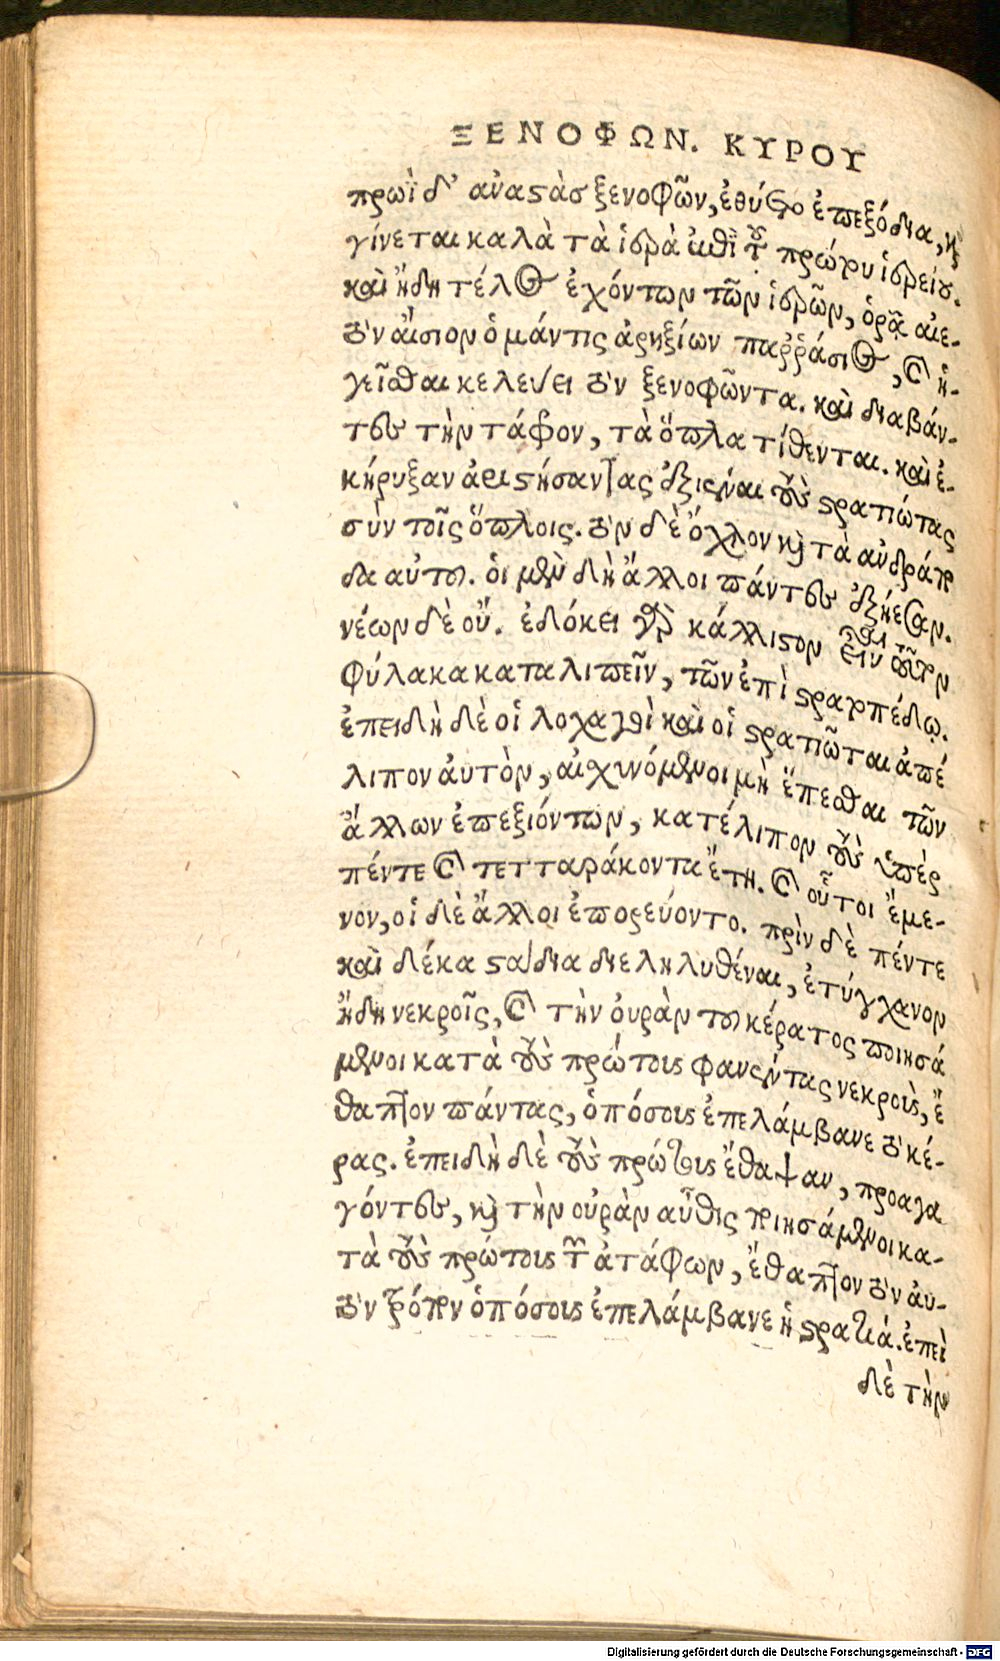 ΞΕΝΟΦΩΝ. ΚΥΡΟΥ
πρωῒ δ’ ἀναστὰσ ξενοφῶν, ἐθύετο ἐπεξόδια, καὶ
γίνεται καλὰ τὰ ἱερὰ ἐπὶ τοῦ πρώτου ἱερείου.
καὶ ἤδη τέλος ἐχόντων τῶν ἱερῶν, ὁρᾷ αἰε-
τὸν αἴσιον ὁ μάντις ἀρηξίων παῤῥάσιος, καὶ ἡ-
γεῖσθαι κελεύει τὸν ξενοφῶντα. καὶ διαβάν-
τες τὴν τάφρον, τὰ ὅπλα τίθενται. καὶ ἐ-
κήρυξαν ἀριστήσαντας ἐξιέναι τοὺς στρατιώτας
σὺν τοῖς ὅπλοις. τὸν δὲ ὄχλον καὶ τὰ ἀνδράπο
δα αὐτοῦ. οἱ μὲν δὴ ἄλλοι πάντες ἐξῄεσαν.
νέων δὲ οὔ. ἐδόκει γὰρ κάλλιστον εἶναι τοῦτον
φύλακα καταλιπεῖν, τῶν ἐπὶ στρατοπέδῳ.
ἐπειδὴ δὲ οἱ λοχαγοὶ καὶ οἱ στρατιῶται ἀπέ
λιπον ἀυτὸν, αἰσχυνόμενοι μὴ ἕπεσθαι τῶν
ἄλλων ἐπεξιόντων, κατέλιπον τοὺς ὑπὲρ
πέντε καὶ τετταράκοντα ἔτη. καὶ οὗτοι ἔμε-
νον, οἱ δὲ ἄλλοι ἐπορεύοντο. πρὶν δὲ πέντε
καὶ δέκα στάδια διεληλυθέναι, ἐτύγχανον
ἤδη νεκροῖς, καὶ τὴν ὀυρὰν τοῦ κέρατος ποιησά
μενοι κατὰ τοὺς πρώτους φανέντας νεκροὺς, ἔ
θαπτον πάντας, ὁπόσους ἐπελάμβανε τὸ κέ-
ρας. ἐπειδὴ δὲ τοὺς πρώτους ἔθαψαν, προαγα
γόντες, καὶ τὴν οὐρὰν αὖθις ποιησάμενοι κα-
τὰ τοὺς πρώτους τῶν ἀτάφων, ἔθαπτον τὸν ἀυ-
τὸν τρόπον ὁπόσους ἐπελάμβανε ἡ στρατιά. ἐπεὶ
δὲ τὴν
Digitalisierung gefördert durch die Deutsche Forschungsgemeinschaft - DFG